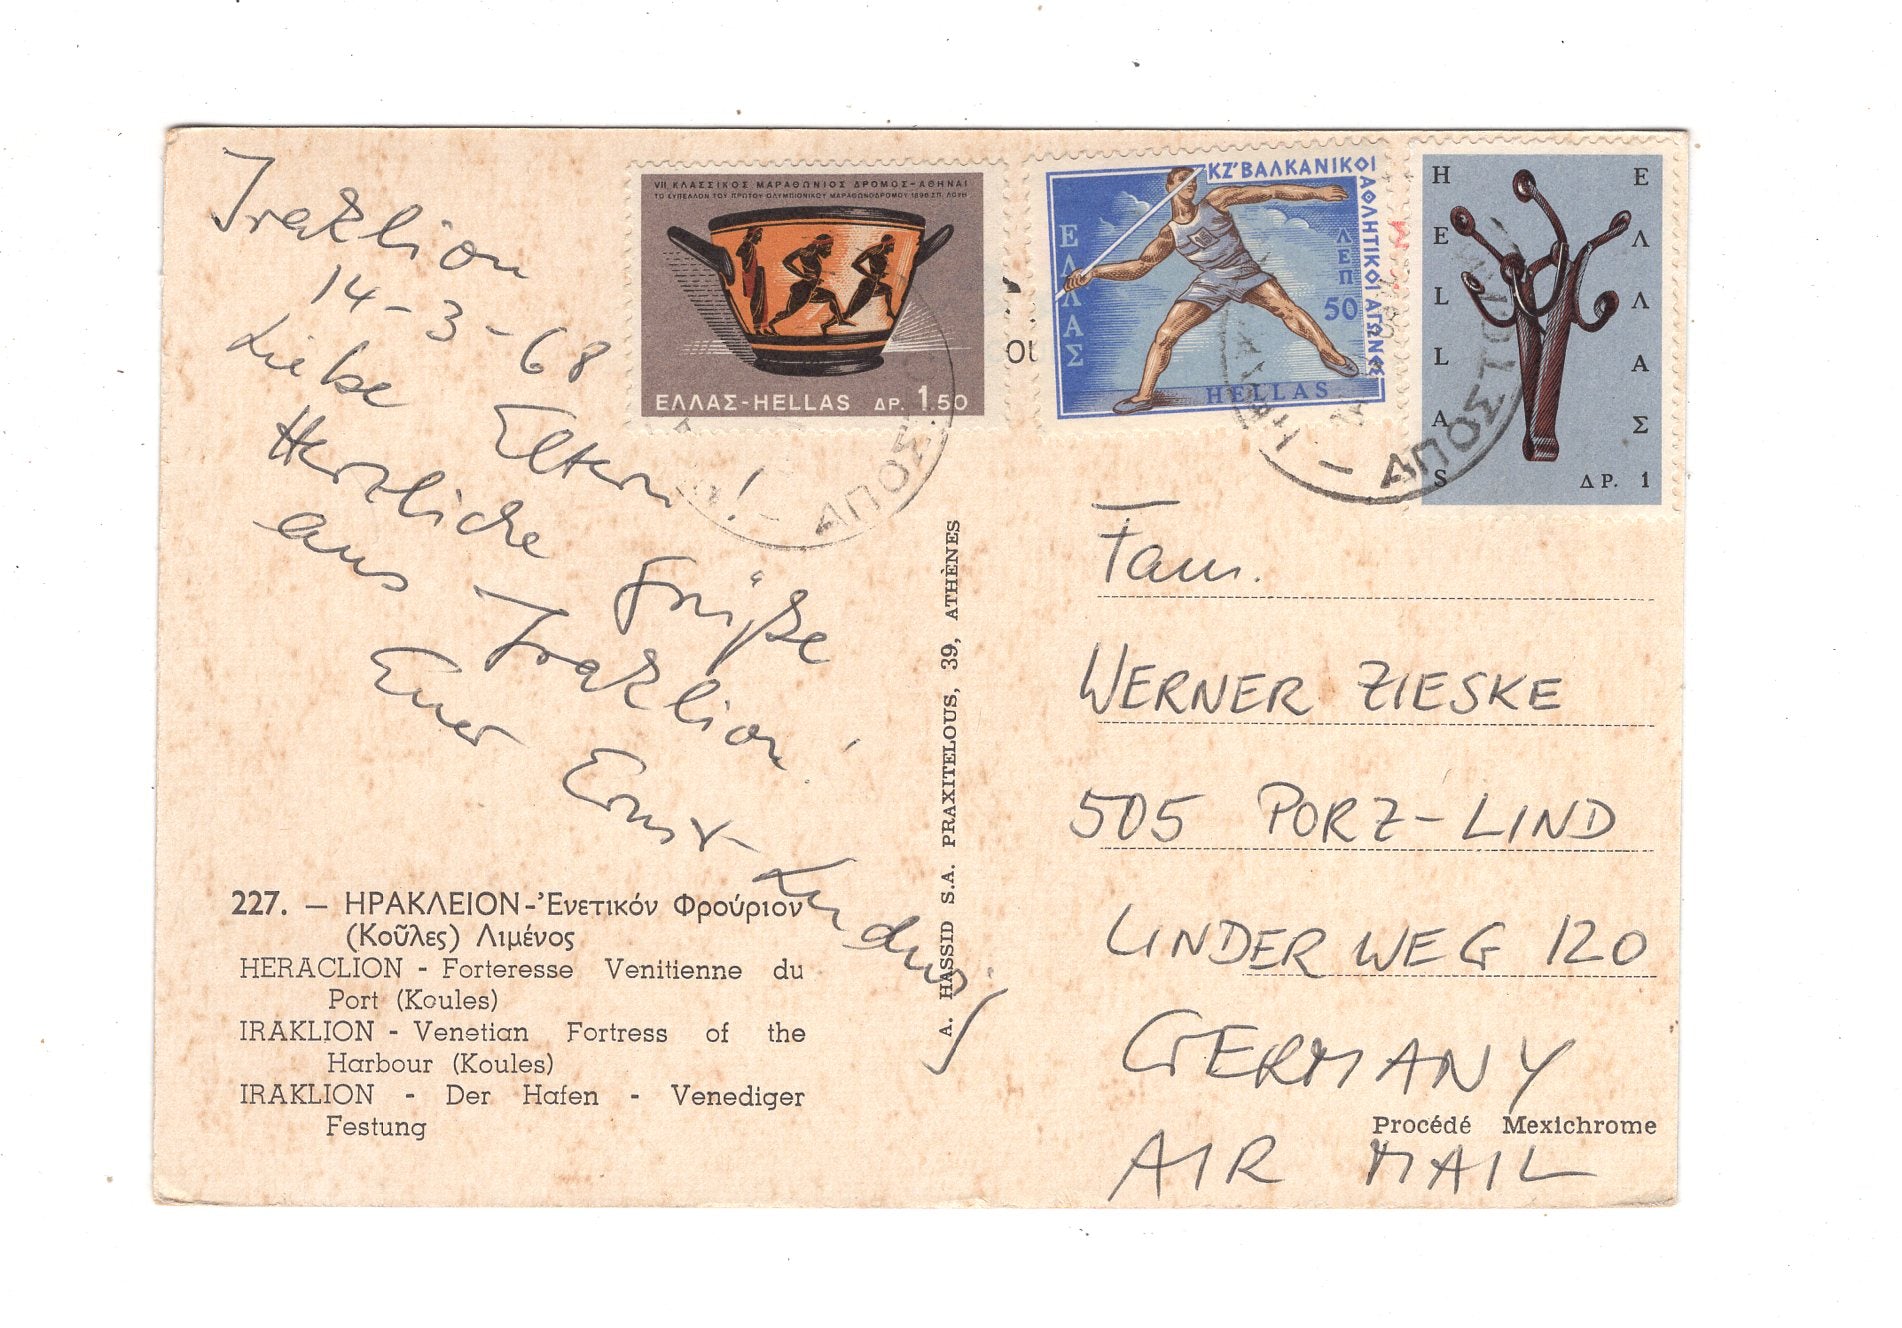 Iraklion
14-3-68
Liebe Eltern!
Herzliche Grüße
aus Iraklion!
Euer Ernst-Ludwig
227. — ΗΡΑΚΛΕΙΟΝ-Ἐνετικόν Φρούριον
(Κοῦλες) Λιμένος
HERACLION - Forteresse Venitienne du
Port (Koules)
IRAKLION - Venetian Fortress of the
Harbour (Koules)
IRAKLION - Der Hafen - Venediger
Festung
A. HASSID S.A. PRAXITELOUS, 39, ATHÈNES
VII ΚΛΑΣΣΙΚΟΣ ΜΑΡΑΘΩΝΙΟΣ ΔΡΟΜΟΣ-ΑΘΗΝΑΙ
ΤΟ ΚΥΠΕΛΛΟΝ ΤΟΥ ΠΡΩΤΟΥ ΟΛΥΜΠΙΟΝΙΚΟΥ ΜΑΡΑΘΩΝΟΔΡΟΜΟΥ 1896 ΣΠ. ΛΟΥΗ
ΕΛΛΑΣ-HELLAS ΔΡ. 1.50
ΚΖ' ΒΑΛΚΑΝΙΚΟΙ
ΑΘΛΗΤΙΚΟΙ ΑΓΩΝΕΣ
ΕΛΛΑΣ
ΛΕΠ
50
HELLAS
HELLAS
ΕΛΛΑΣ
ΔΡ. 1
ΑΠΟΣΤΟΛ
Fam.
WERNER ZIESKE
505 PORZ-LIND
LINDER WEG 120
GERMANY
Procédé Mexichrome
AIR MAIL